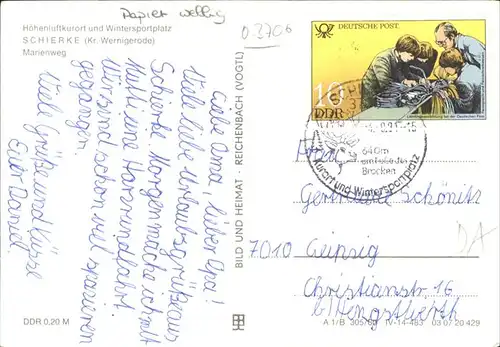 Papier wellig
03706
Höhenluftkurort und Wintersportplatz
SCHIERKE (Kr. Wernigerode)
Marienweg
Liebe Oma, lieber Opa!
Viele liebe Urlaubsgrüße aus
Schierke. Morgen mache ich mit
Mutti eine Harzrundfahrt.
Wir sind schon viel spazieren
gegangen.
Viele Grüße und Küsse
Euer Daniel.
DDR 0,20 M
BILD UND HEIMAT · REICHENBACH (VOGTL)
DEUTSCHE POST
10
DDR
640m
am Fuße des
Brocken
Kurort und Wintersportplatz
Gertrude Schönitz
7010 Leipzig
Christianstr. 16
b/ Hengstwerth
DA
A 1/B 305/80 IV-14-483 03 07 20 429